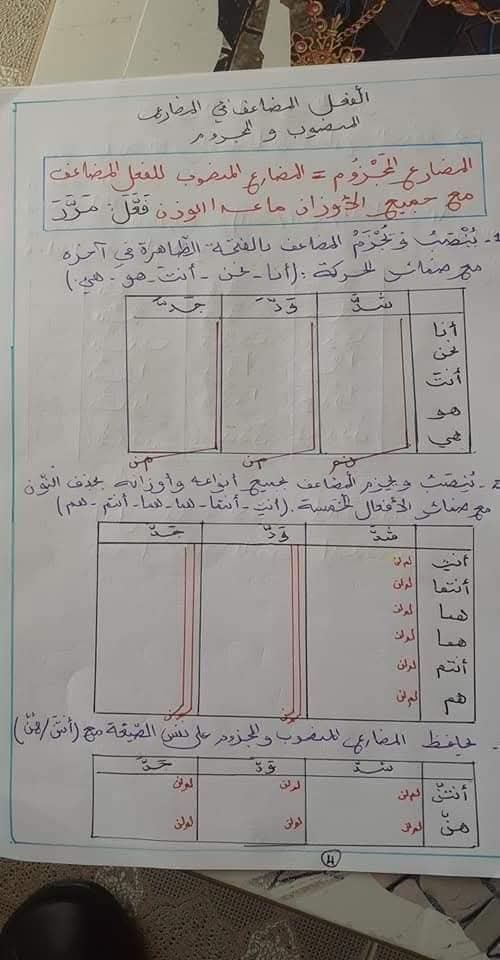 الفعل المضاعف في المضارع
المنصوب و المجزوم
المضارع المَجْزُوم = المضارع المنصوب للفعل المضاعف
مع جميع الأوزان ماعدا الوزن فَعَّلَ: مَرَّدَ
1- يُنْصَبُ وَ يُجْزَمُ المضاعف بالفتحة الظاهرة في آخره
مع ضمائر الحركة: (أنا - نحن - أنتَ - هو - هي)
شدَّ وَدَّ جَدَّ
أنا
نحن
أنتَ
هو
هي
2- يُنصَبُ و يجزم المضاعف بجميع أنواعه وأوزانه بحذف النّون
مع ضمائر الأفعال الخمسة. (أنتِ - أنتما - هما - هما - أنتم - هم)
شدَّ وَدَّ جَدَّ
أنتِ
أنتما
هما
هما
أنتم
هم
يحافظ المضارع المنصوب والمجزوم على نفس الصّيغة مع (أنتنّ/هُنَّ)
شدَّ وَدَّ جَدَّ
أنتنَّ
هنَّ
4